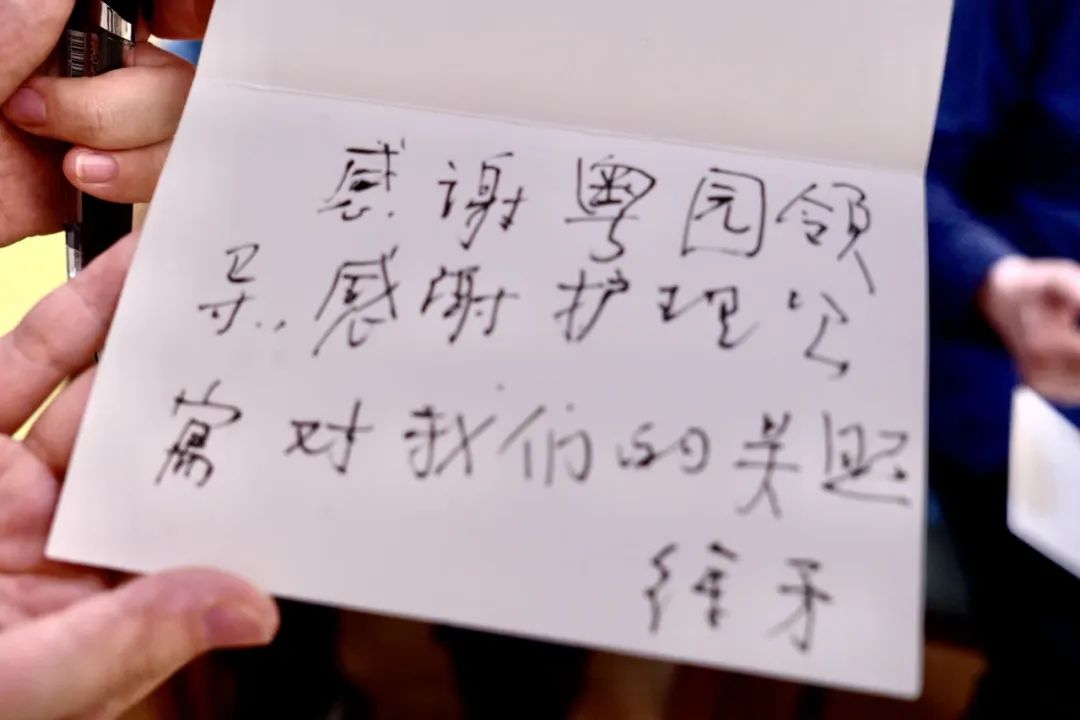 感谢粤园领
导.,感谢护理公
寓对我们的关照